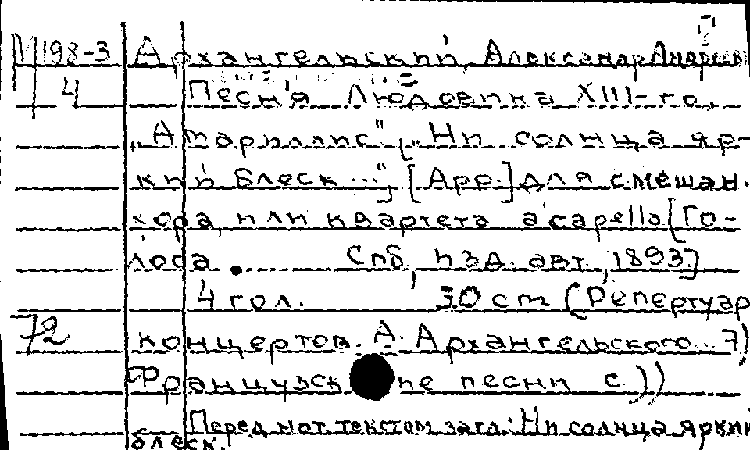 М198-3 Архангельский, Александр Андреев
4 Песня Людовика XIII-го.
„Амариллис" („Ни солнца яр-
кий блеск..."). [Арр.] для смешан.
хора или квартета a'capella [Го-
лоса. Спб, изд. авт., 1893]
4 гол. 30 cm (Репертуар
72 концертов А. Архангельского. 7)
(Французские песни с))
Перед нот. текстом загл.: Ни солнца яркий
блеск.